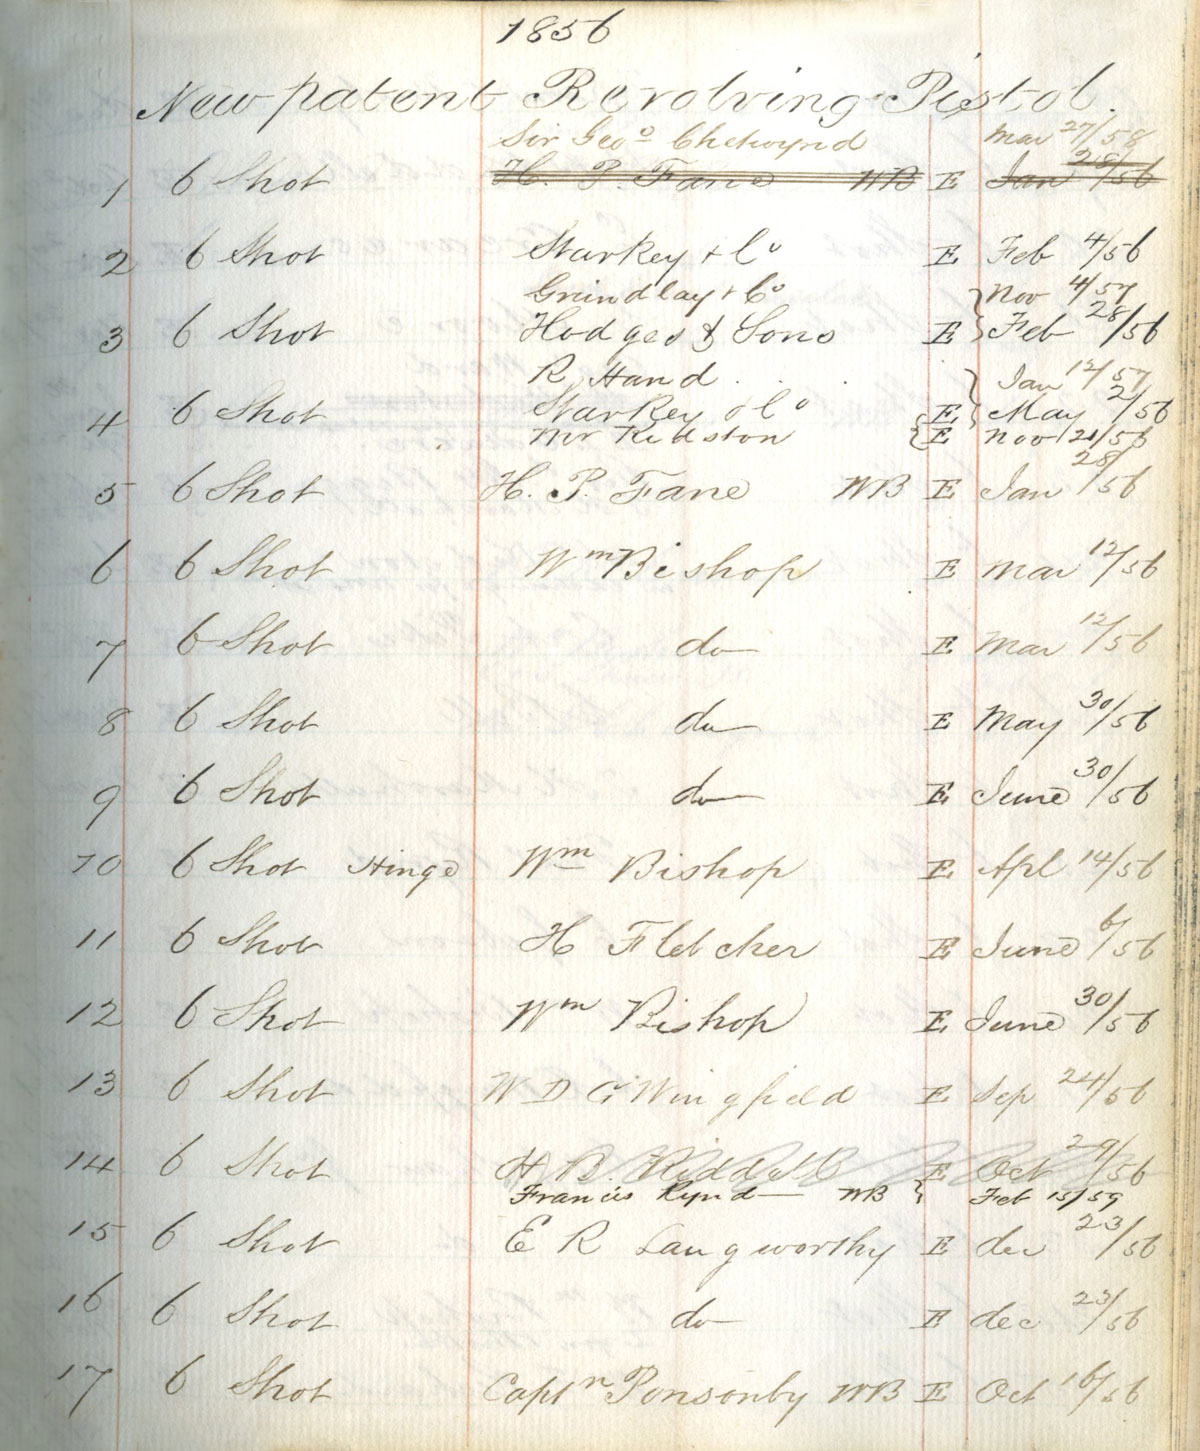 1856
New patent Revolving Pistol.
Sir Geo° Chetwynd Mar 27/58
1 6 Shot H. P. Fane WB E Jan 28/56
2 6 Shot Starkey & Co E Feb 4/56
Grindlay & Co Nov 4/57
3 6 Shot Hodges & Sons E Feb 28/56
R Hand Jan 12/57
4 6 Shot Starkey & Co E May 2/56
Mr Kidston E Nov 21/56
5 6 Shot H. P. Fane WB E Jan 28/56
6 6 Shot Wm Bishop E Mar 12/56
7 6 Shot do E Mar 12/56
8 6 Shot do E May 30/56
9 6 Shot do E June 30/56
10 6 Shot Hinge Wm Bishop E Apl 14/56
11 6 Shot H Fletcher E June 6/56
12 6 Shot Wm Bishop E June 30/56
13 6 Shot W D G Wingfield E Sep 24/56
14 6 Shot H B. Riddell E Oct 29/56
Francis Rynd WB Feb 15/59
15 6 Shot E R Langworthy E dec 23/56
16 6 Shot do E dec 23/56
17 6 Shot Captn Ponsonby WB E Oct 16/56